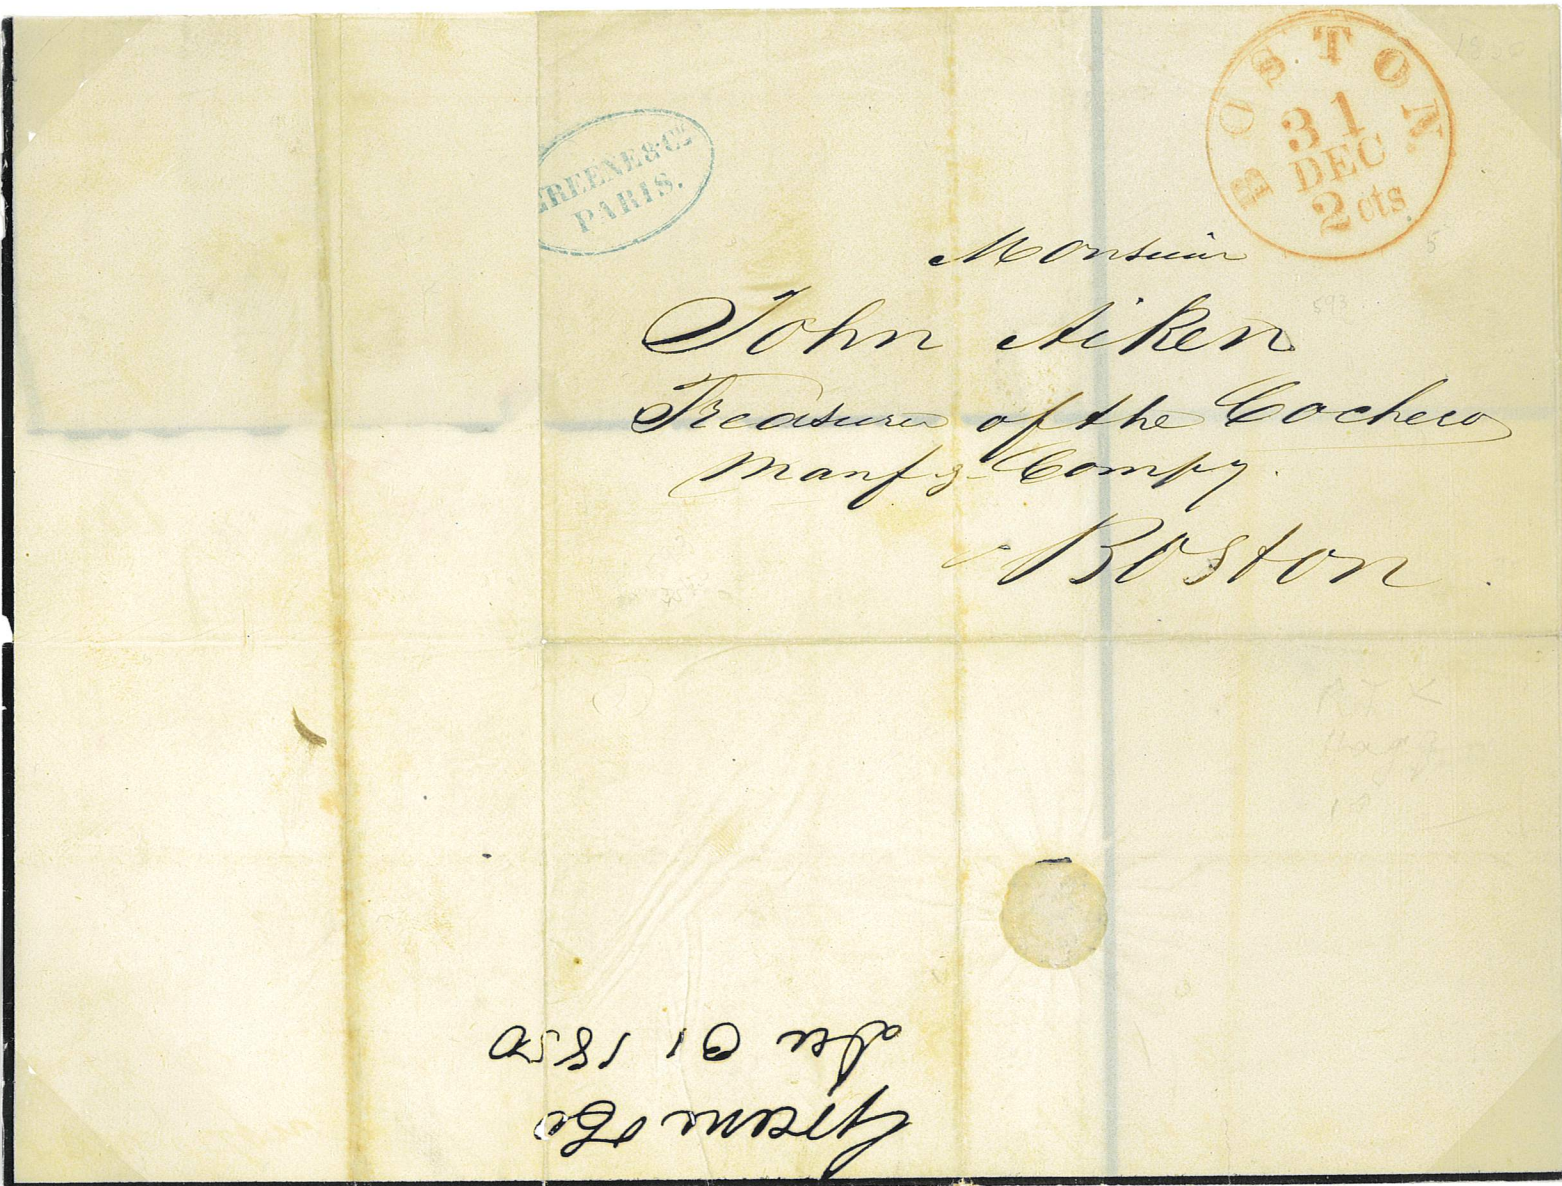 GREENE & Co
PARIS.
BOSTON
31
DEC
2 cts
Monsieur
John Aiken
Treasurer of the Cocheco
Manfg. Compy.
Boston
Greene & Co
Dec 31 1850
1850
5
593